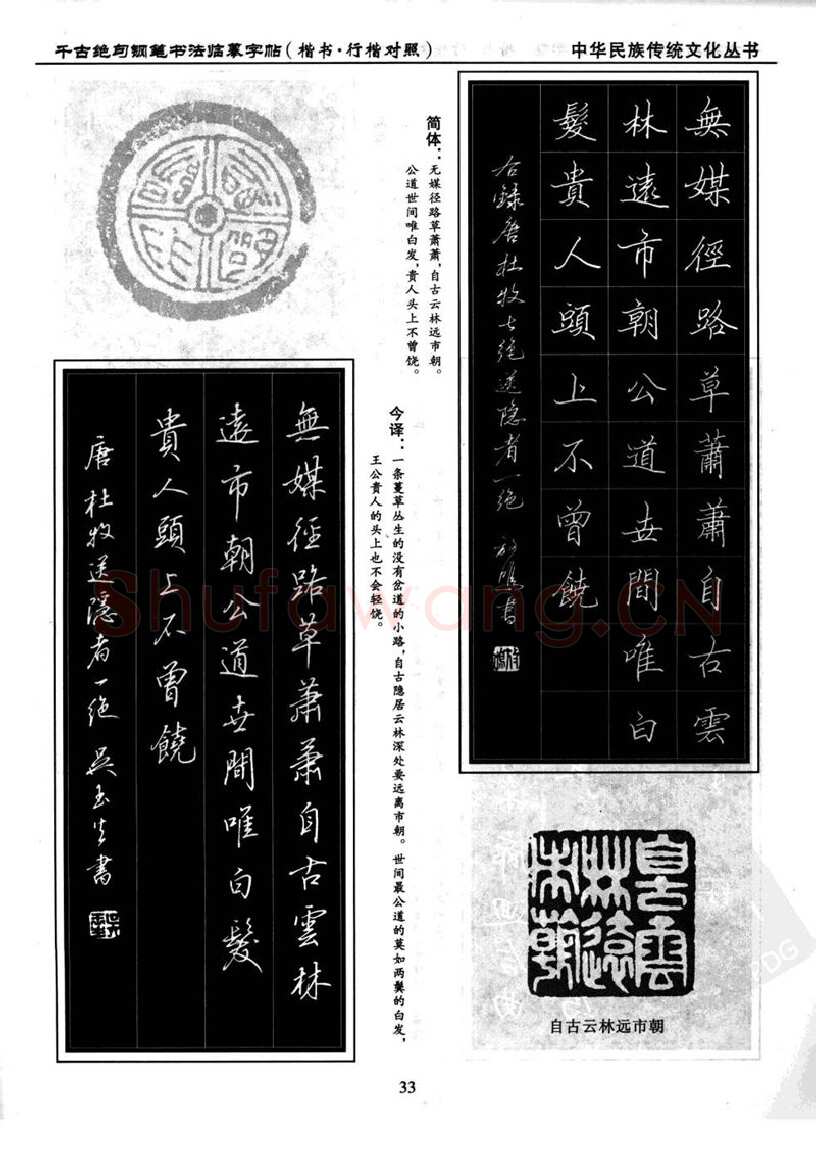 千古绝句钢笔书法临摹字帖(楷书·行楷对照)
中华民族传统文化丛书
無媒徑路草蕭蕭自古雲
林遠市朝公道世間唯白
髮貴人頭上不曾饒
右錄唐杜牧七绝送隐者一绝
書
简体：无媒径路草萧萧，自古云林远市朝。
公道世间唯白发，贵人头上不曾饶。
今译：一条蔓草丛生的没有岔道的小路，自古隐居云林深处要远离市朝。世间最公道的莫如两鬓的白发，
王公贵人的头上也不会轻饶。
無媒徑路草蕭蕭自古雲林
遠市朝公道世間唯白髮
貴人頭上不曾饒
唐杜牧送隱者一绝 吴玉生書
自古雲林遠市朝
自古云林远市朝
33
Shufawang.CN